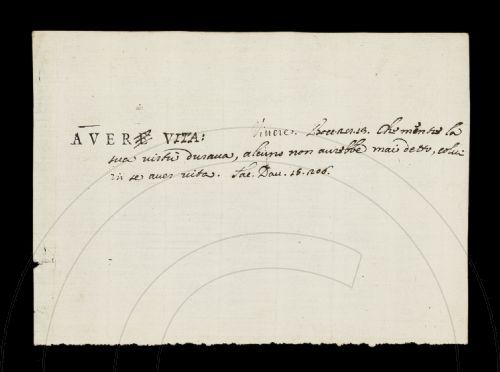 AVERE VITA: Vivere. Bocc. Che mentre la
sua virtù durava, alcuno non avrebbe mai detto, colui
in se aver vita. Tac. Dav. 15. 206.